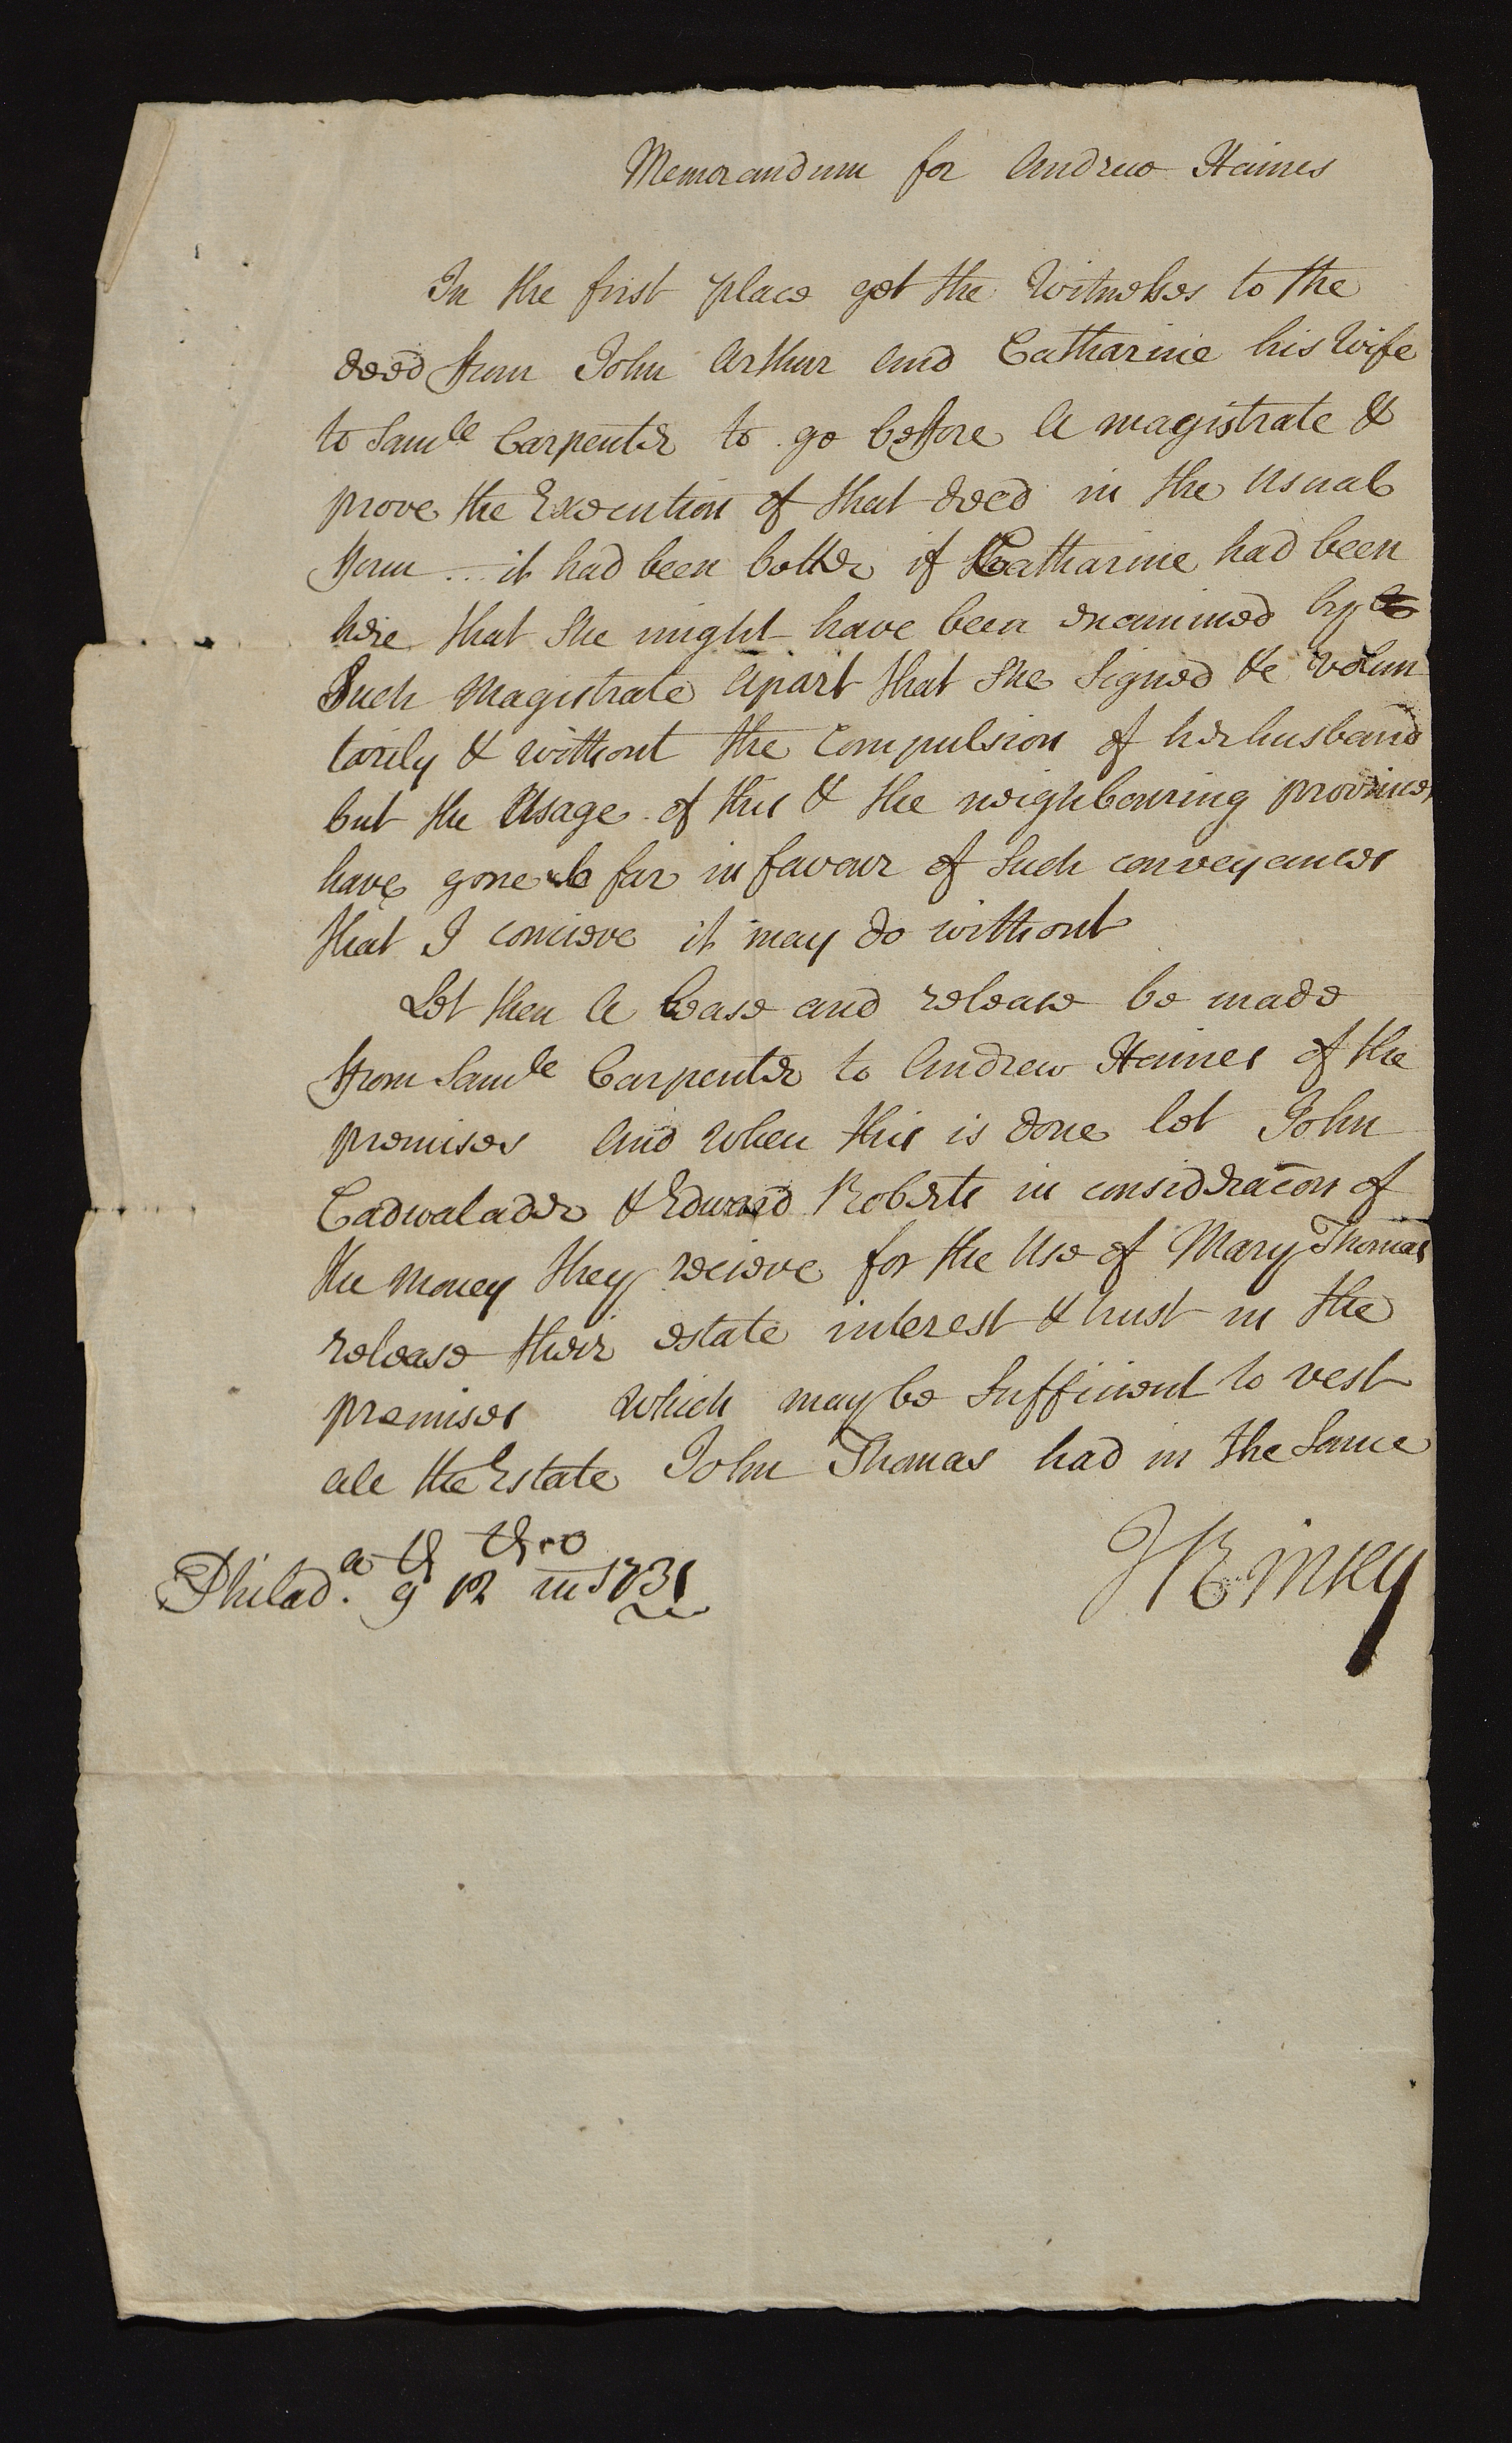 Memorandum for Andrew Haines
In the first place get the Witnesses to the
deed from John Arthur and Catharine his Wife
to Samll Carpenter to go before A magistrate &
prove the Execution of that deed in the usual
form ... it had been better if Catharine had been
here that she might have been examined by
Such Magistrate Apart that she Signed &c volun
tarily & without the Compulsion of her husband
but the Usage of this & the neighbouring provinces
have gone so far in favour of Such conveyances
that I concieve it may do without
Let then A Lease and release be made
from Samll Carpenter to Andrew Haines of the
premises And when this is done let John
Cadwalader & Edward Roberts in consideracon of
the money they recieve for the Use of Mary Thomas
release their estate interest & trust in the
premises which may be Sufficient to vest
all the Estate John Thomas had in the Same
Philada. 9th 12th mo 1731